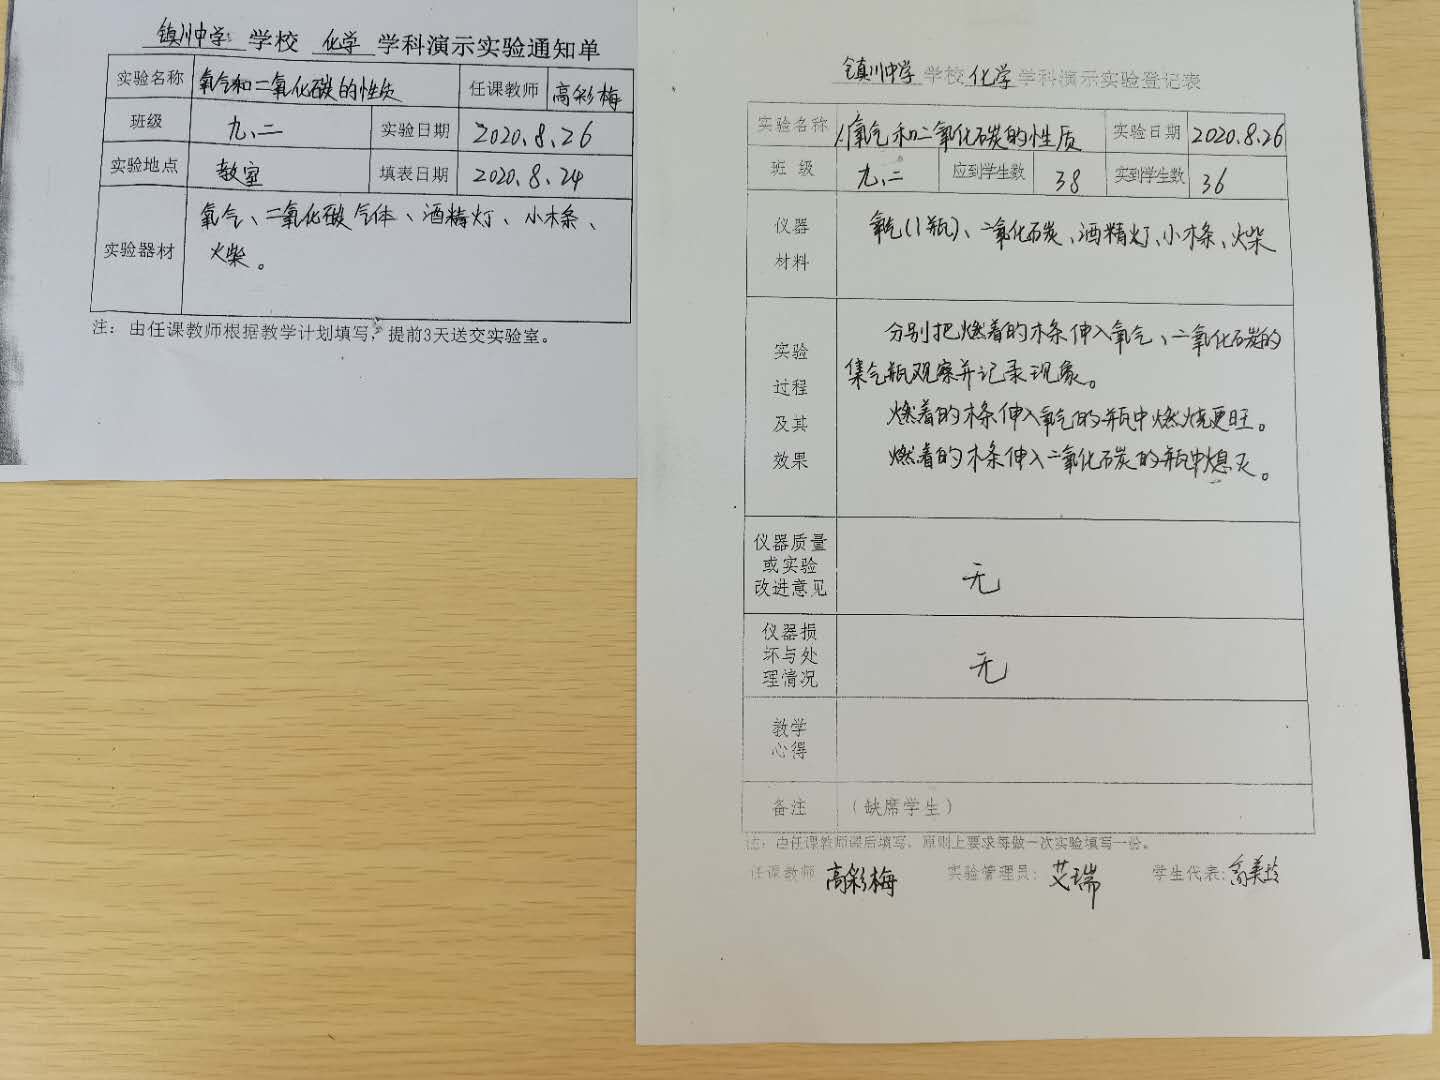 镇川中学 学校 化学 学科演示实验通知单
实验名称 氧气和二氧化碳的性质 任课教师 高彩梅
班级 九、二 实验日期 2020.8.26
实验地点 教室 填表日期 2020.8.24
实验器材 氧气、二氧化碳气体、酒精灯、小木条、
火柴。
注：由任课教师根据教学计划填写，提前3天送交实验室。
镇川中学 学校 化学 学科演示实验登记表
实验名称 1.氧气和二氧化碳的性质 实验日期 2020.8.26
班 级 九、二 应到学生数 38 实到学生数 36
仪器
材料
氧气(1瓶)、二氧化碳、酒精灯、小木条、火柴
实验
过程
及其
效果
分别把燃着的木条伸入氧气、二氧化碳的
集气瓶观察并记录现象。
燃着的木条伸入氧气的瓶中燃烧更旺。
燃着的木条伸入二氧化碳的瓶中熄灭。
仪器质量
或实验
改进意见
无
仪器损
坏与处
理情况
无
教学
心得
备注 （缺席学生）
注：由任课教师课后填写，原则上要求每做一次实验填写一份。
任课教师 高彩梅 实验管理员：艾瑞 学生代表：高美玲